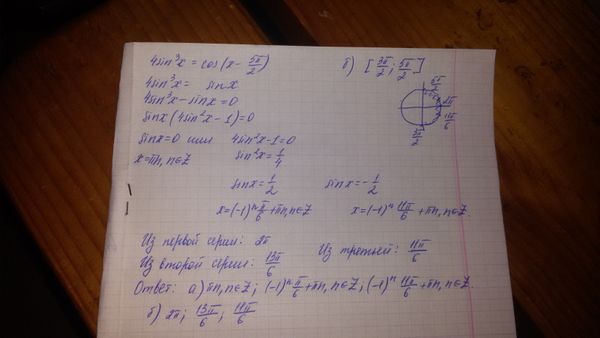 4sin³x = cos(x - 5π/2)
б) [3π/2; 5π/2]
4sin³x = sinx
4sin³x - sinx = 0
sinx(4sin²x - 1) = 0
sinx = 0 или 4sin²x - 1 = 0
x = πn, n∈Z sin²x = 1/4
sinx = 1/2 sinx = -1/2
x = (-1)ⁿ π/6 + πn, n∈Z x = (-1)ⁿ 11π/6 + πn, n∈Z.
5π/2
2π
11π/6
3π/2
Из первой серии: 2π
Из второй серии: 13π/6
Из третьей: 11π/6
Ответ: а) πn, n∈Z; (-1)ⁿ π/6 + πn, n∈Z; (-1)ⁿ 11π/6 + πn, n∈Z.
б) 2π; 13π/6; 11π/6